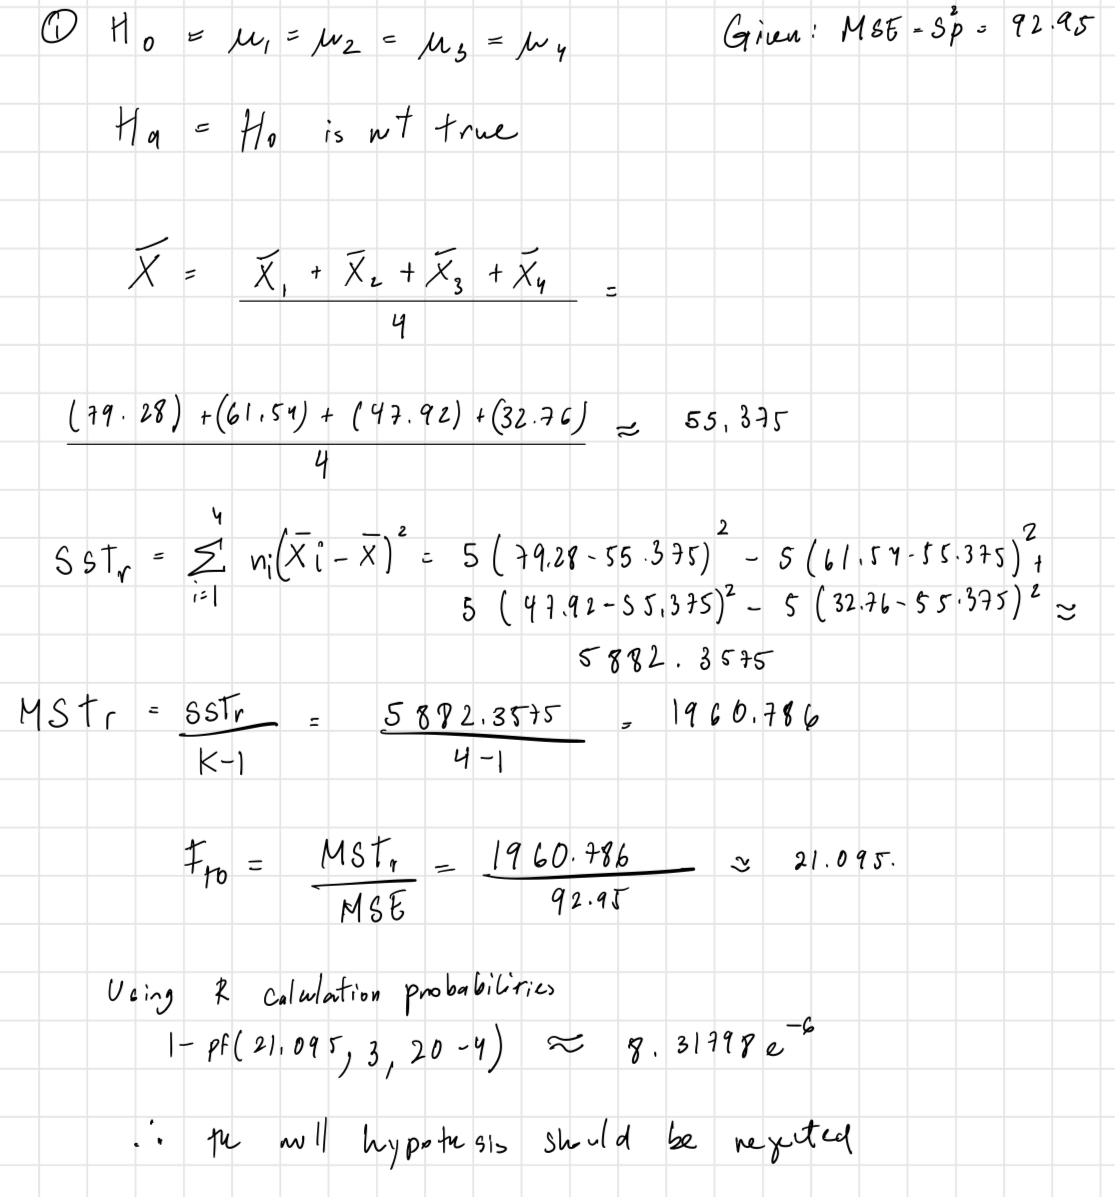 ① H₀ = μ₁ = μ₂ = μ₃ = μ₄ Given: MSE = S²p = 92.95
Ha = H₀ is not true
X̄ = (X̄₁ + X̄₂ + X̄₃ + X̄₄) / 4 =
((79.28) + (61.54) + (47.92) + (32.76)) / 4 ≈ 55.375
SSTr = Σ⁴ᵢ₌₁ nᵢ(X̄i - X̄)² = 5(79.28 - 55.375)² - 5(61.54 - 55.375)² +
5(47.92 - 55.375)² - 5(32.76 - 55.375)² ≈
5882.3575
MSTr = SSTr / (K-1) = 5882.3575 / (4-1) = 1960.786
F₊₀ = MSTr / MSE = 1960.786 / 92.95 ≈ 21.095.
Using R calculation probabilities
1 - pf(21.095, 3, 20-4) ≈ 8.31798e⁻⁶
∴ the null hypothesis should be rejected